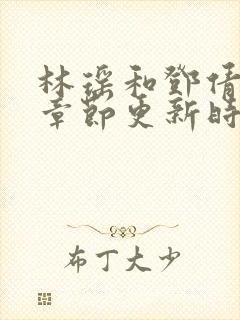 林瑶和邓倩
章节更新时
布丁大少